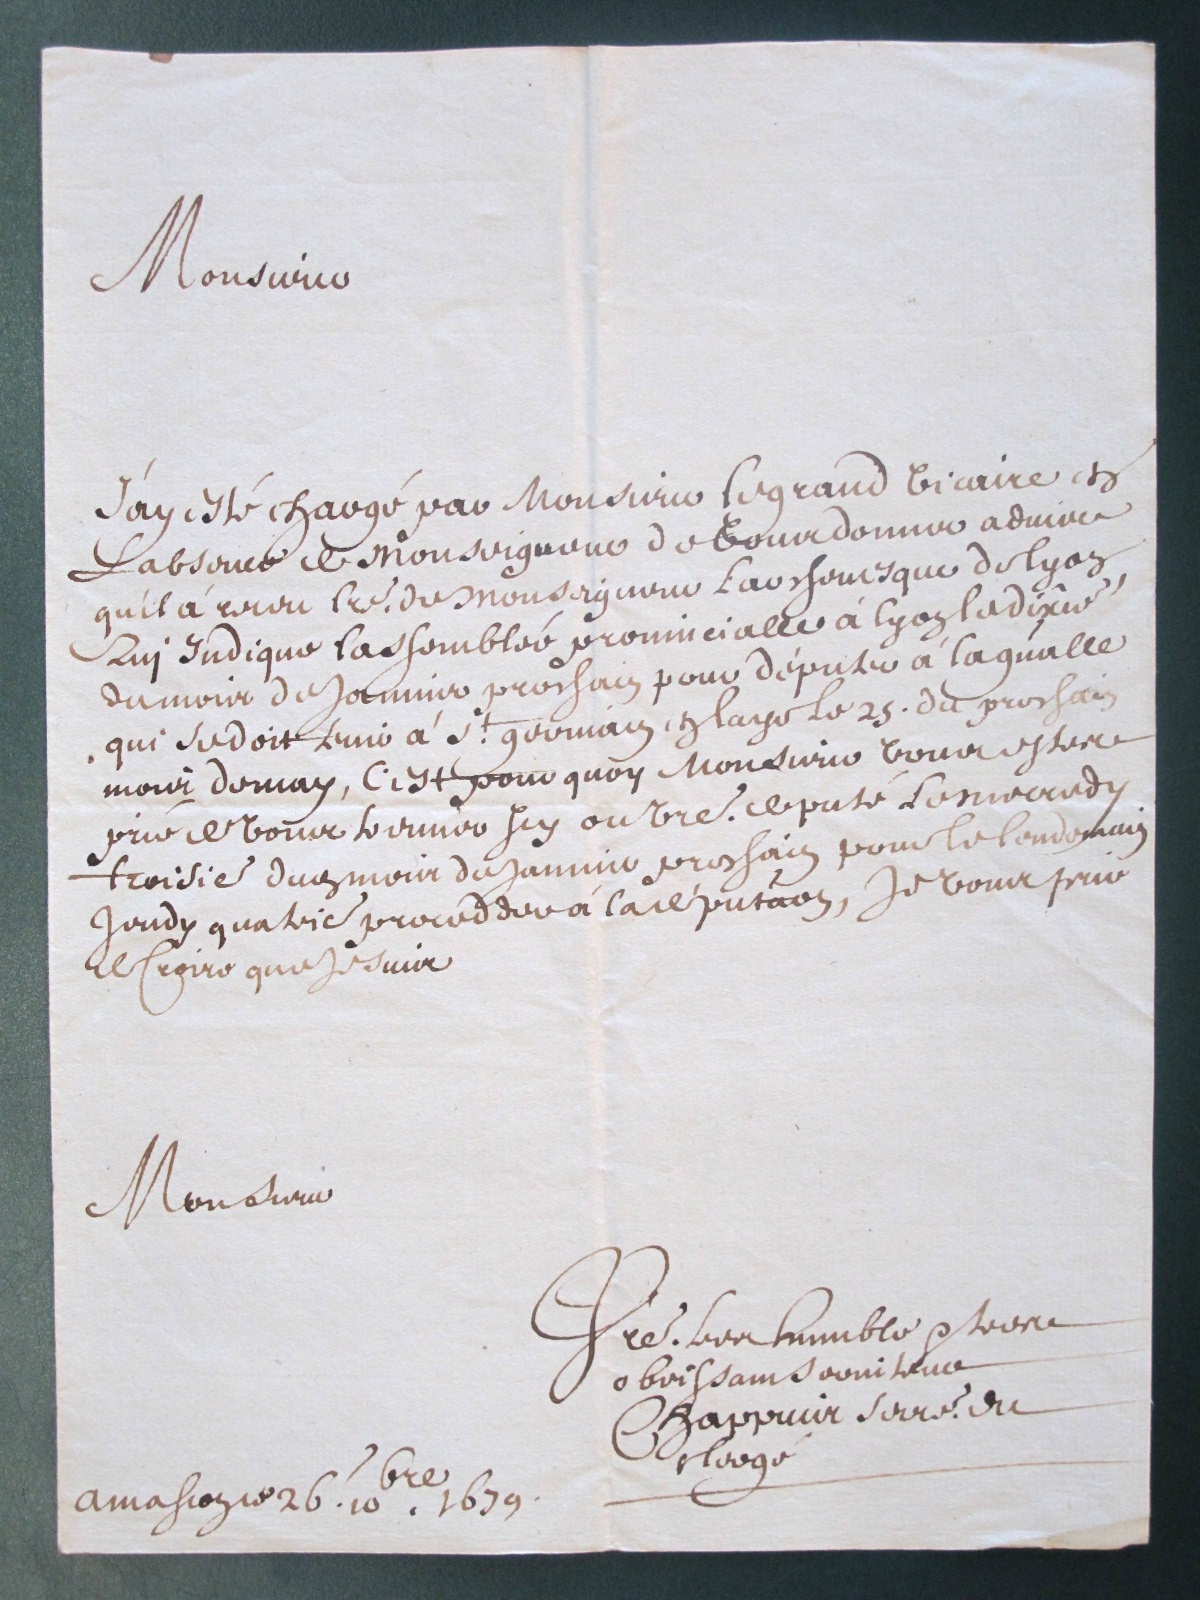 Monsieur
J'ay esté chargé par Monsieur le grand Vicaire en
L'absence de Monseigneur de vous donner advis
quil á receu lre. de Monseigneur Larchevesque de lyon,
Luy Indique lassemblée provincialle á lyon le dixie
du mois de Janvier prochain pour députer á laquelle
qui se doit tenir á St. germain en laye le 25. du prochain
mois de may, C'est pourquoy Monsieur vous estes
prié de vous trouver Icy ou vre. deputé le mercredy
troisie dud mois de Janvier prochain pour le lendemain
Jeudy quatrie procedder á la députaon, Je vous prie
de Croire que Je suis
Monsieur
Vre. tres humble & tres
obeissant serviteur
Chappuis secre. du
clergé
a mascon ce 26. 10bre. 1679.